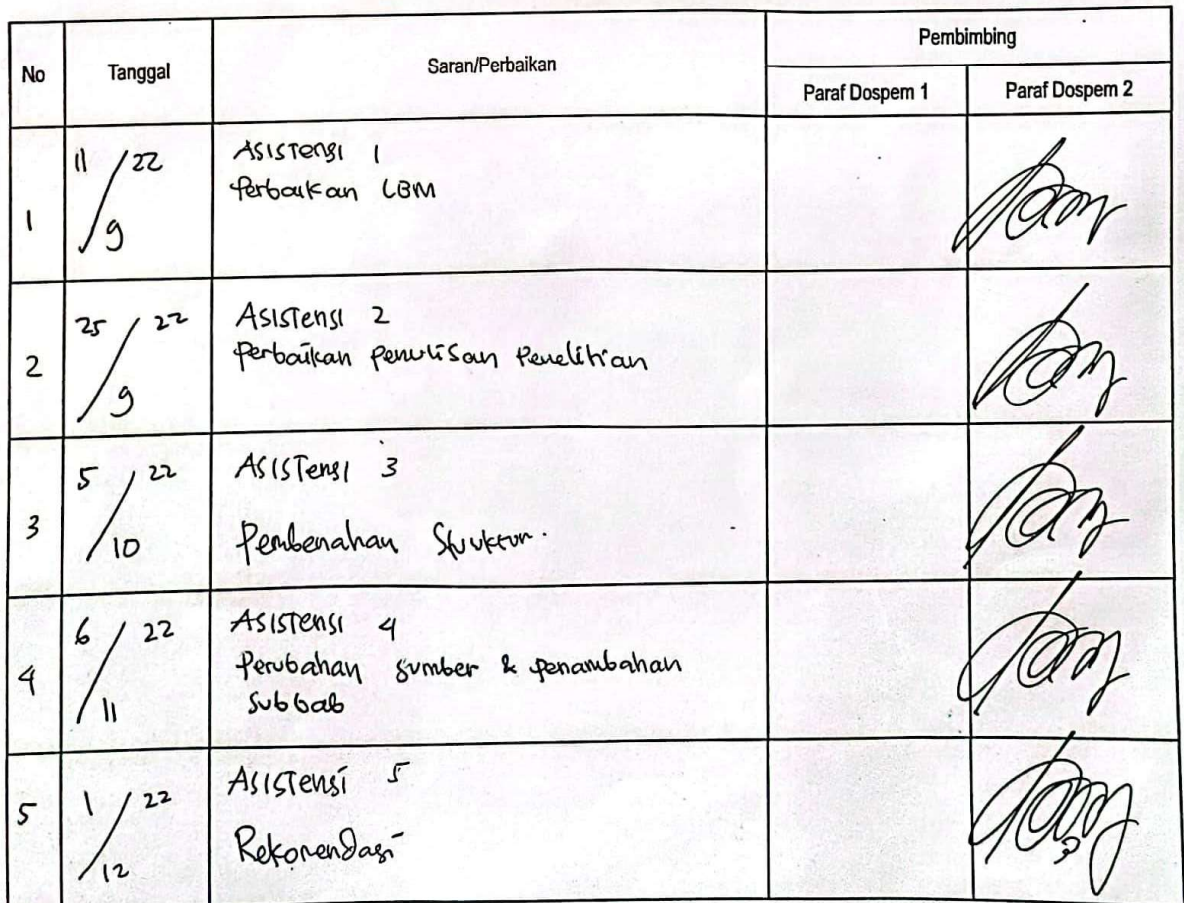 No Tanggal Saran/Perbaikan Pembimbing
Paraf Dospem 1 Paraf Dospem 2
1 11/9 22 Asistensi 1
Perbaikan LBM
2 25/9 22 Asistensi 2
Perbaikan penulisan Penelitian
3 5/10 22 Asistensi 3
Pembenahan Struktur.
4 6/11 22 Asistensi 4
Perubahan sumber & penambahan
Subbab
5 1/12 22 Asistensi 5
Rekomendasi